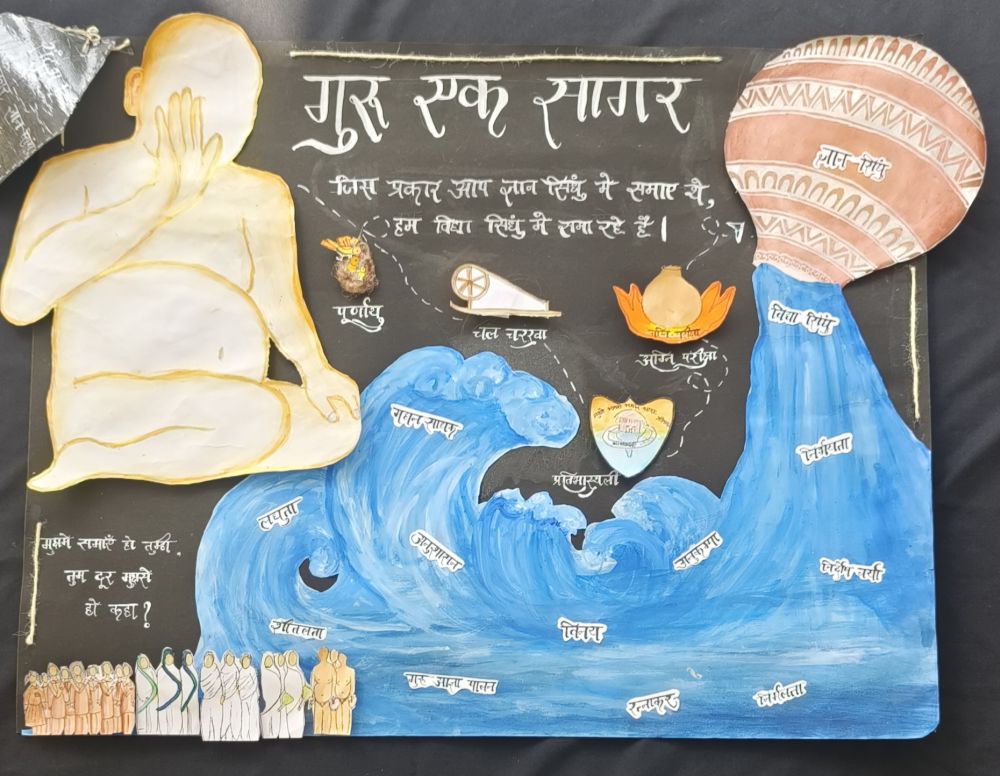 गुरु एक सागर
जिस प्रकार आप ज्ञान सिंधु में समाए थे,
हम विद्या सिंधु में समा रहे हैं।
ज्ञान सिंधु
पूर्णायु
चल चरखा
अग्नि परीक्षा
प्रतिभास्थली
विद्या सिंधु
गहन साधक
निर्भयता
लघुता
अनुशासन
अनुकम्पा
निर्दोष चर्या
मुझमे समाएँ हो तुम्ही.
तुम दूर मुझसे
हो कहा?
शीतलता
विनय
गुरु आज्ञा पालन
रत्नाकर
निर्मलता